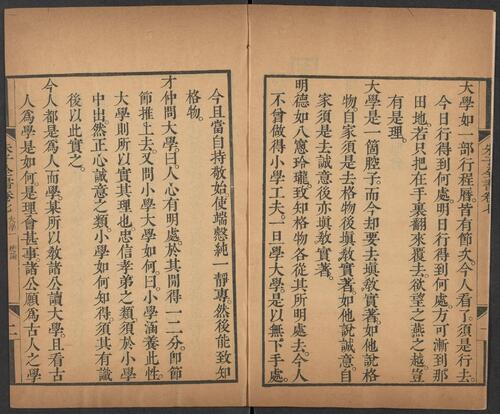 大學如一部行程曆皆有節次今人看了須是行去。
今日行得到何處明日行得到何處方可漸到那
田地若只把在手裏翻來覆去欲望之燕之越豈
有是理。
大學是一箇腔子而今却要去填敎實著如他說格
物自家須是去格物後填敎實著如他說誠意自
家須是去誠意後亦填敎實著。
明德如八窻玲瓏致知格物各從其所明處去今人
不曾做得小學工夫一旦學大學是以無下手處
今且當自持敬始使端慤純一靜專然後能致知
格物。
才仲問大學曰人心有明處於其間得一二分卽節
節推上去又問小學大學如何曰小學涵養此性。
大學則所以實其理也忠信孝弟之類須於小學
中出然正心誠意之類小學如何知得須其有識
後以此實之。
今人都是爲人而學某所以敎諸公讀大學且看古
人爲學是如何是理會甚事諸公願爲古人之學